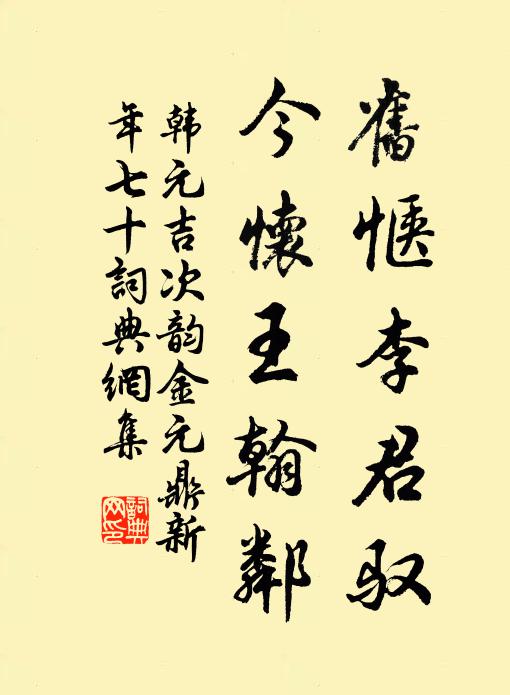 舊惬李君驭
今懷王翰鄰
韩元吉次韵金元鼎新
年七十詞典網集
詞典网印